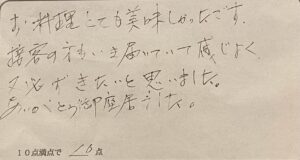 お料理とても美味しかったです。
接客の方もいき届いていて感じよく
又必ずきたいと思いました。
ありがとう御座居ました。
10点満点で 10 点